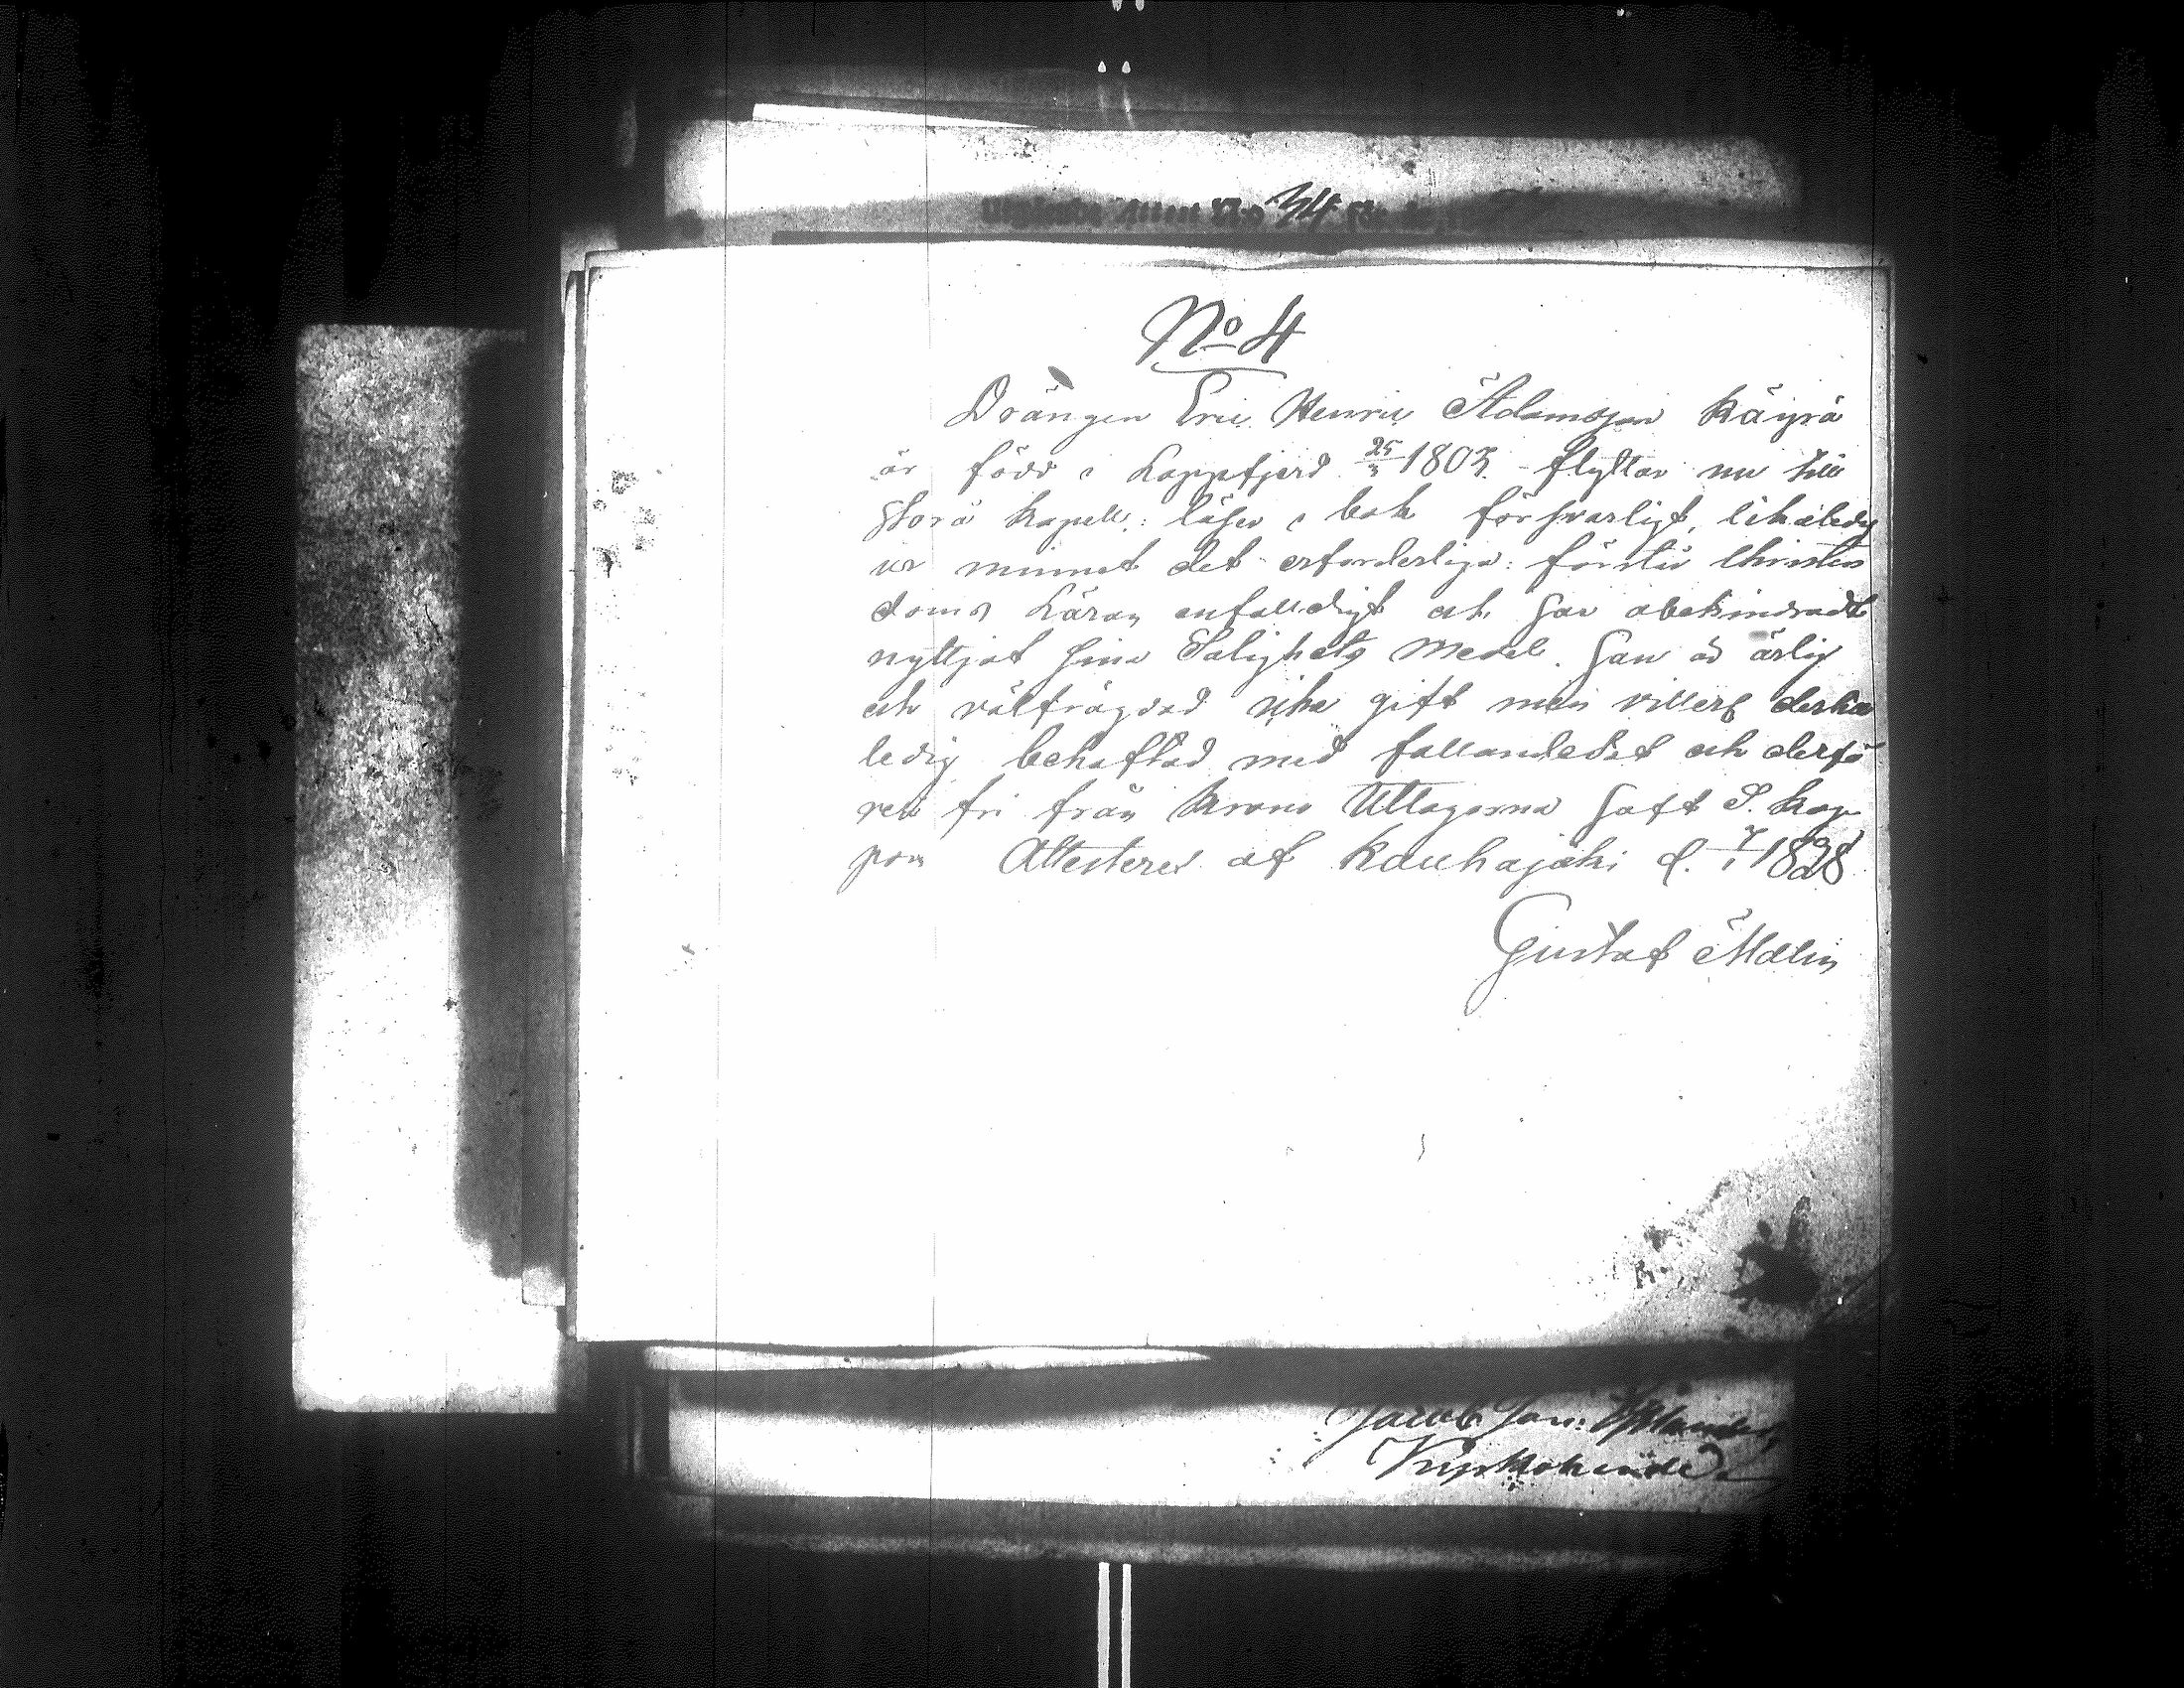 No 34
No 4
Drängen Eric Henric Adamsson Käyrä
är född i Lappfjerd 25/3 1803 flyttar nu till
Storå Kapell: läser i bok försvarligt, likaledes
ur minnet det erforderliga: förstår Christen
doms Läran enfalldigt och har obehindradt
nyttjat sina Salighets Medel. Han är ärlig
och välfrägdad icke gift men
ledig behäftad med fallandesot och derfö
ren fri från Krono Utlagorna haft S. Kop
por Attesterer af Kauhajoki d. 7/1 1828
Gustaf
Jacob Joh:
Kyrkoherde